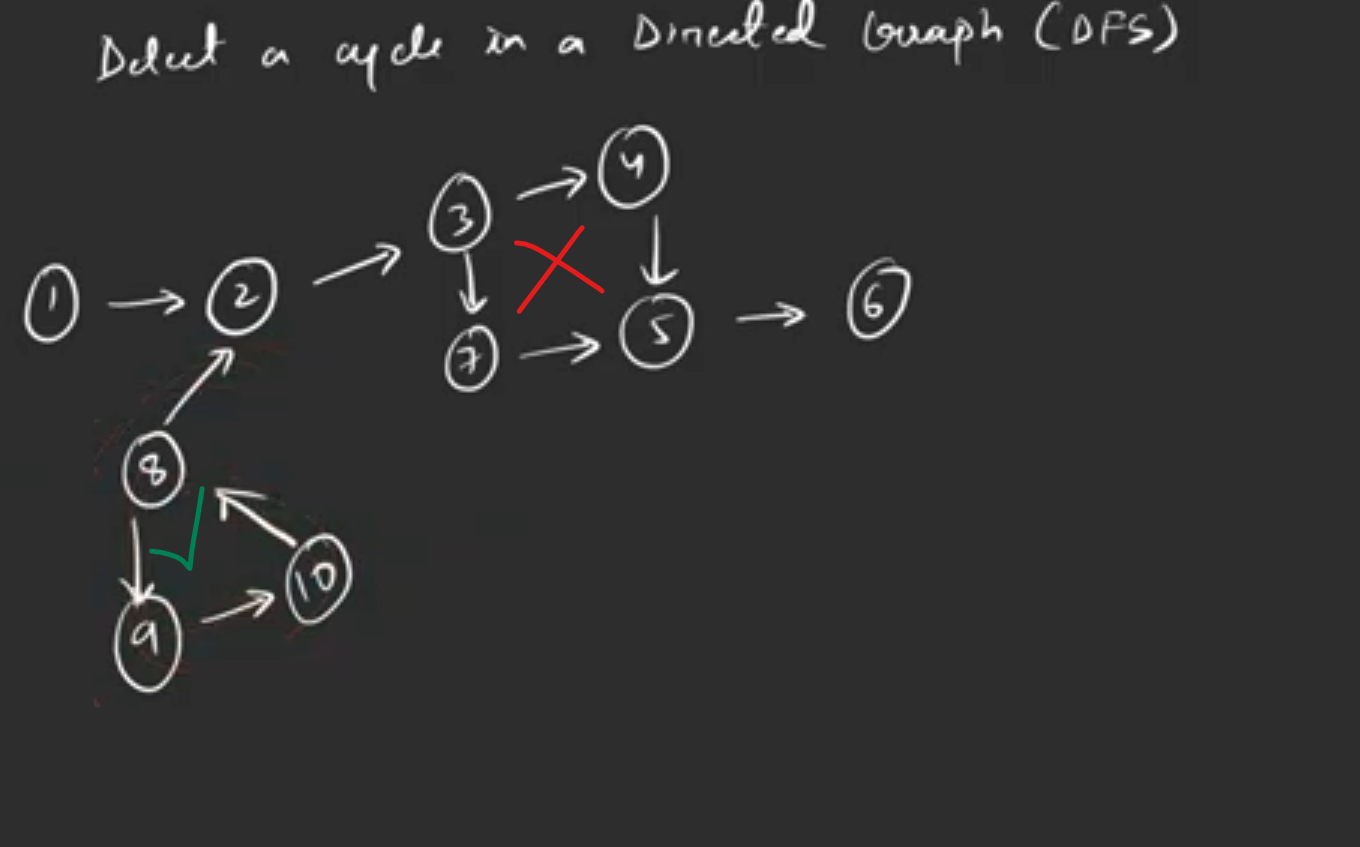 Detect a cycle in a Directed Graph (DFS)
4
3
1
2
6
5
7
8
10
9